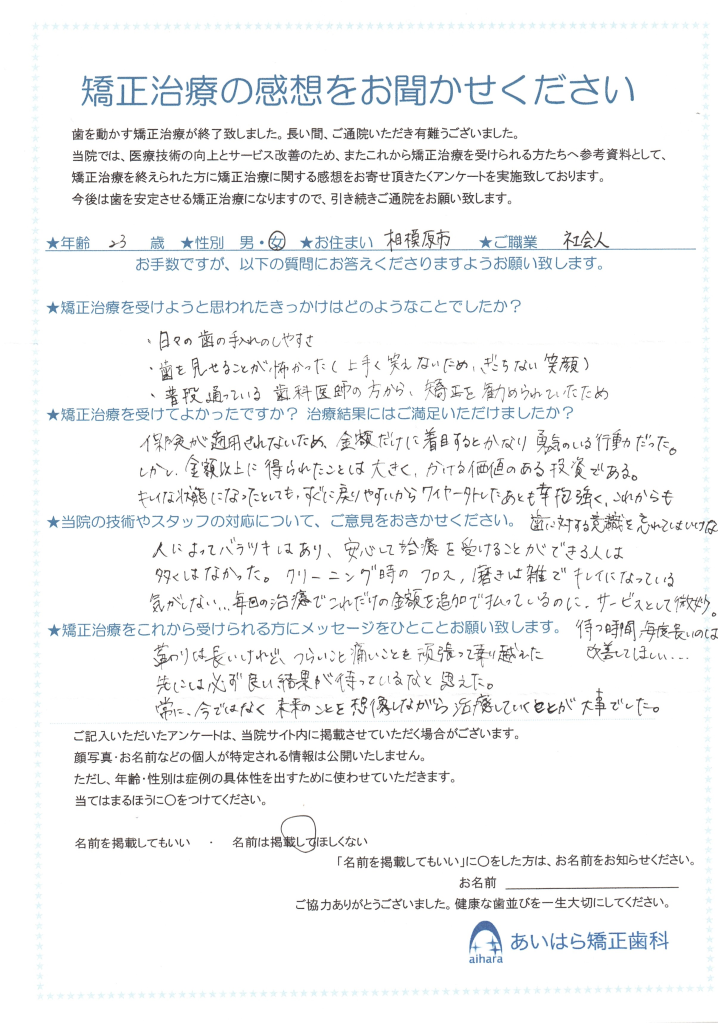 矯正治療の感想をお聞かせください
歯を動かす矯正治療が終了致しました。長い間、ご通院いただき有難うございました。
当院では、医療技術の向上とサービス改善のため、またこれから矯正治療を受けられる方たちへ参考資料として、
矯正治療を終えられた方に矯正治療に関する感想をお寄せ頂きたくアンケートを実施致しております。
今後は歯を安定させる矯正治療になりますので、引き続きご通院をお願い致します。
★年齢 23 歳 ★性別 男・女 ★お住まい 相模原市 ★ご職業 社会人
お手数ですが、以下の質問にお答えくださりますようお願い致します。
★矯正治療を受けようと思われたきっかけはどのようなことでしたか？
・日々の歯の手入れのしやすさ
・歯を見せることが怖かった（上手く笑えないため、ぎこちない笑顔）
・普段通っている歯科医師の方から、矯正を勧められていたため
★矯正治療を受けてよかったですか？ 治療結果にはご満足いただけましたか？
保険が適用されないため、金額だけに着目するとかなり勇気のいる行動だった。
しかし、金額以上に得られたことは大きく、かける価値のある投資である。
キレイな状態になったとしても、すぐに戻りやすいからワイヤーをとったあとも辛抱強く、これからも
★当院の技術やスタッフの対応について、ご意見をおきかせください。 歯に対する意識を忘れてはいけない
人によってバラツキはあり、安心して治療を受けることができる人は
多くはなかった。クリーニング時のフロス、磨きは雑でキレイになっている
気がしない…毎回の治療でこれだけの金額を追加で払っているのに、サービスとして微妙。
★矯正治療をこれから受けられる方にメッセージをひとことお願い致します。 待つ時間、毎度長いのは
改善してほしい…
道のりは長いけれど、つらいこと痛いことも頑張って乗り越えた
先には必ず良い結果が待っているなと思えた。
常に、今ではなく未来のことを想像しながら治療していくことが大事でした。
ご記入いただいたアンケートは、当院サイト内に掲載させていただく場合がございます。
顔写真・お名前などの個人が特定される情報は公開いたしません。
ただし、年齢・性別は症例の具体性を出すために使わせていただきます。
当てはまるほうに〇をつけてください。
名前を掲載してもいい ・ 名前は掲載してほしくない
「名前を掲載してもいい」に〇をした方は、お名前をお知らせください。
お名前
ご協力ありがとうございました。健康な歯並びを一生大切にしてください。
aihara あいはら矯正歯科